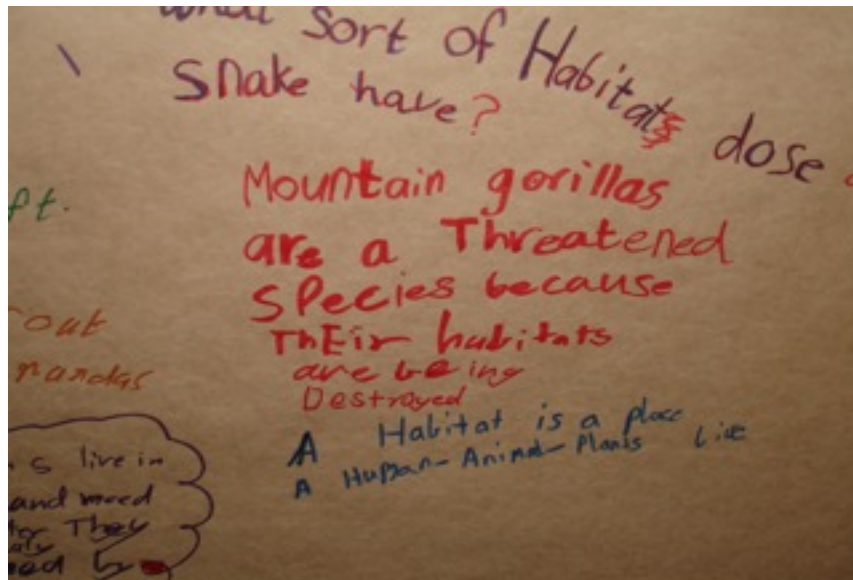 What sort of Habitats dose a
Snake have?
Mountain gorillas
are a Threatened
Species because
ThEir habitats
are being
Destroyed
A Habitat is a place
A Human-Animal-Plants live
ft.
out
pandas
s live in
and mued
They
ned by